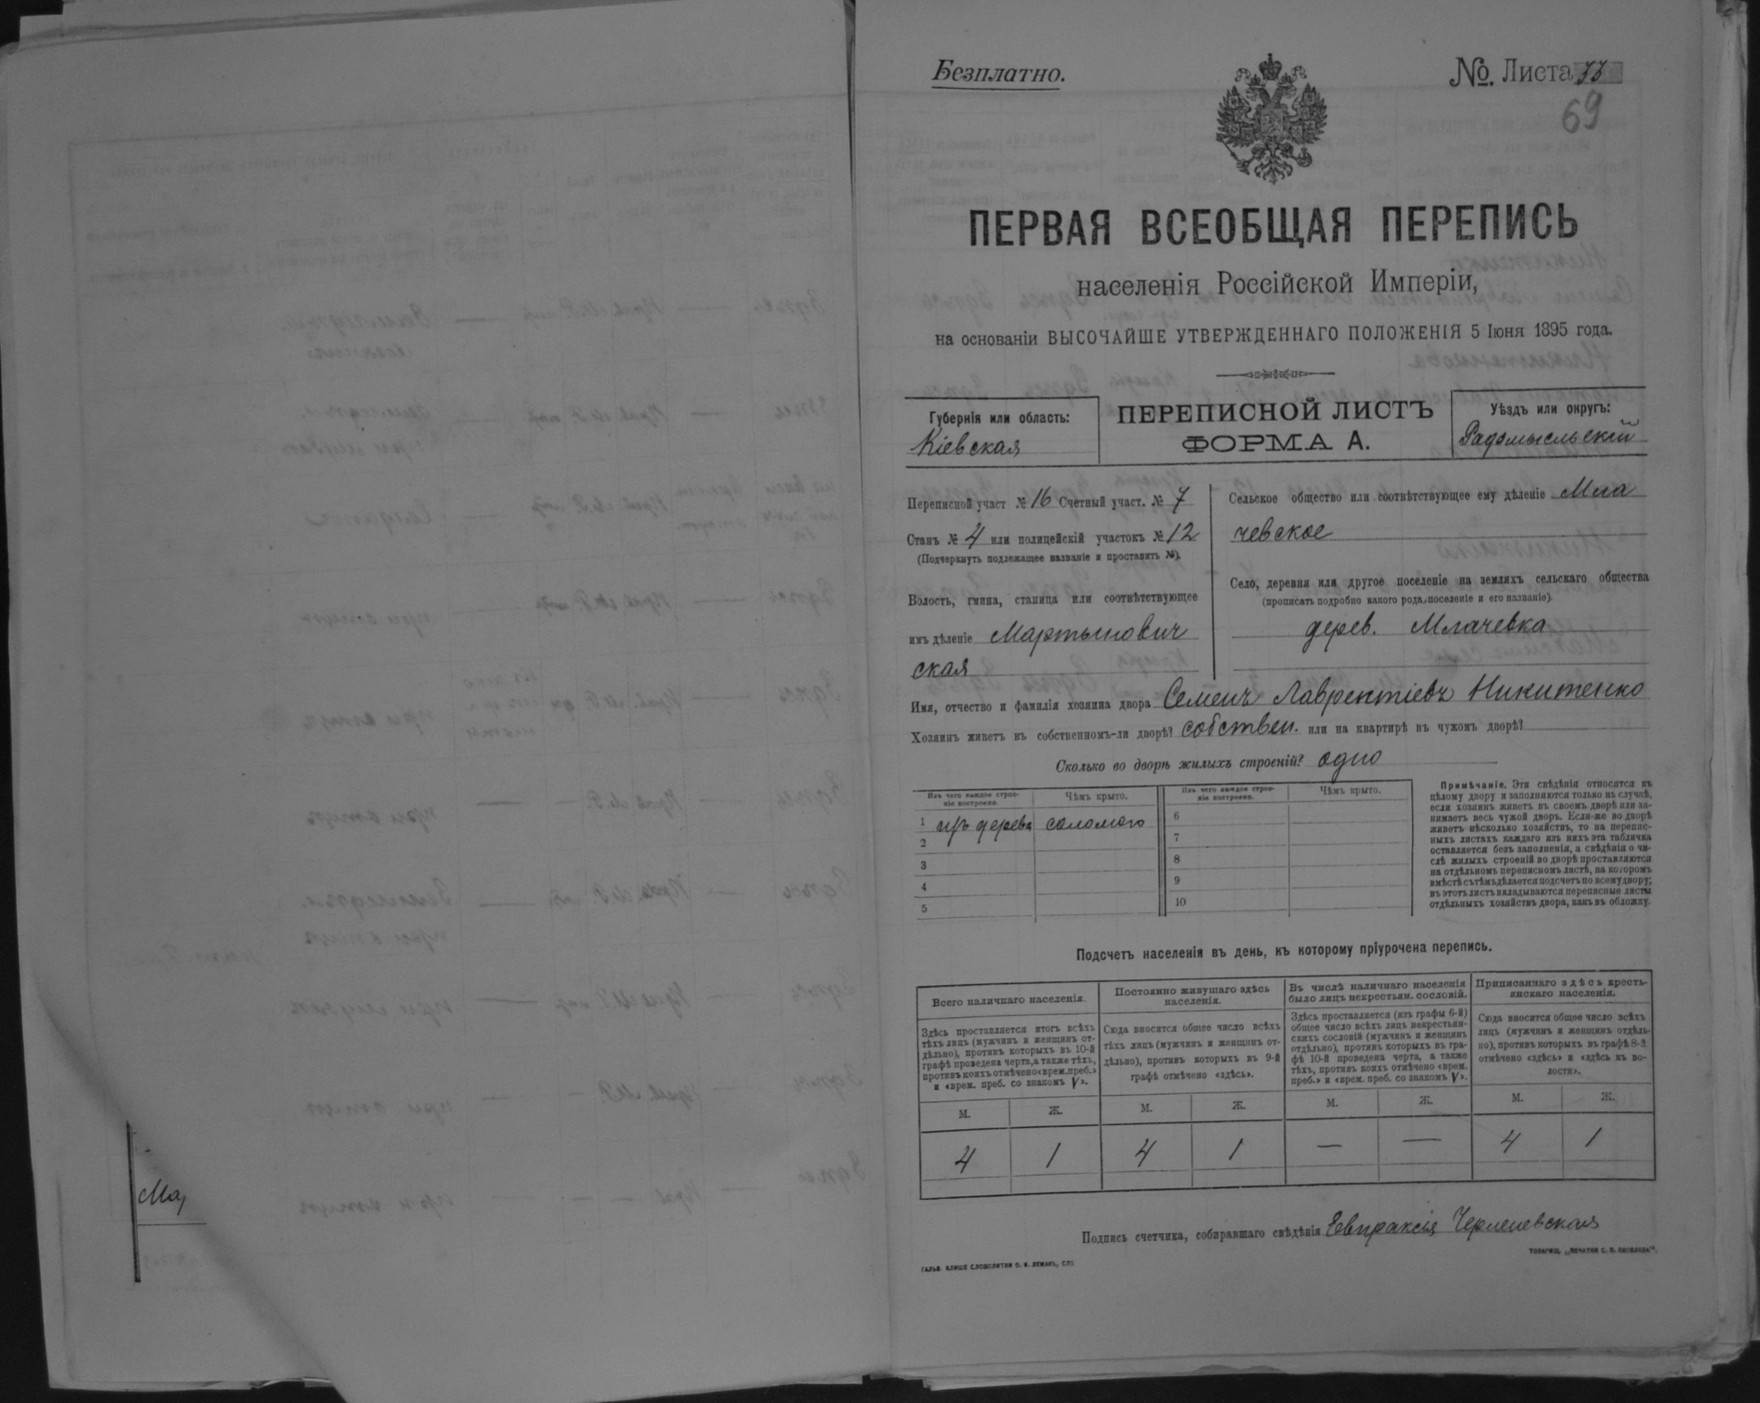 Безплатно.
№. Листа
69
ПЕРВАЯ ВСЕОБЩАЯ ПЕРЕПИСЬ
населенія Россійской Имперіи,
на основаніи ВЫСОЧАЙШЕ УТВЕРЖДЕННАГО ПОЛОЖЕНІЯ 5 Іюня 1895 года.
Губернія или область:
Кіевская
ПЕРЕПИСНОЙ ЛИСТЪ
ФОРМА А.
Уѣздъ или округъ:
Радомысльскій
Переписной участ № 16 Счетный участ. № 7
Станъ № 4 или полицейскій участокъ № 12
(Подчеркнуть подлежащее названіе и проставить №).
Волость, гмина, станица или соотвѣтствующее
имъ дѣленіе Мартынович
ская
Сельское общество или соотвѣтствующее ему дѣленіе Мла
чевское
Село, деревня или другое поселеніе на земляхъ сельскаго общества
(прописать подробно какого рода поселеніе и его названіе)
дерев. Млачевка
Имя, отчество и фамилія хозяина двора Семенъ Лаврентіевъ Никитенко
Хозяинъ живетъ въ собственномъ-ли дворѣ? собствен. или на квартирѣ въ чужомъ дворѣ?
Сколько во дворѣ жилыхъ строеній? одно
Изъ чего каждое строе-
ніе построено.
Чѣмъ крыто.
1 изъ дерева соломою
2
3
4
5
Изъ чего каждое строе-
ніе построено.
Чѣмъ крыто.
6
7
8
9
10
Примѣчаніе. Эти свѣдѣнія относятся къ
цѣлому двору и заполняются только въ случаѣ,
если хозяинъ живетъ въ своемъ дворѣ или за-
нимаетъ весь чужой дворъ. Если-же во дворѣ
живетъ нѣсколько хозяйствъ, то на перепис-
ныхъ листахъ каждаго изъ нихъ эта табличка
оставляется безъ заполненія, а свѣдѣнія о чи-
слѣ жилыхъ строеній во дворѣ проставляются
на отдѣльномъ переписномъ листѣ, на которомъ
вмѣстѣ съ тѣмъ дѣлается подсчетъ по всему двору;
въ этотъ листъ вкладываются переписные листы
отдѣльныхъ хозяйствъ двора, какъ въ обложку.
Подсчетъ населенія въ день, къ которому пріурочена перепись.
Всего наличнаго населенія.
Здѣсь проставляется итогъ всѣхъ
тѣхъ лицъ (мужчинъ и женщинъ от-
дѣльно), противъ которыхъ въ 10-й
графѣ проведена черта, а также тѣхъ,
противъ коихъ отмѣчено «врем. преб.»
и «врем. преб. со знакомъ V».
М. Ж.
4 1
Постоянно живущаго здѣсь
населенія.
Сюда вносится общее число всѣхъ
тѣхъ лицъ (мужчинъ и женщинъ от-
дѣльно), противъ которыхъ въ 9-й
графѣ отмѣчено «здѣсь».
М. Ж.
4 1
Въ числѣ наличнаго населенія
было лицъ некрестьян. сословій.
Здѣсь проставляется (изъ графы 6-й)
общее число всѣхъ лицъ некрестьян-
скихъ сословій (мужчинъ и женщинъ
отдѣльно), противъ которыхъ въ гра-
фѣ 10-й проведена черта, а также
тѣхъ, противъ коихъ отмѣчено «врем.
преб.» и «врем. преб. со знакомъ V».
М. Ж.
— —
Приписаннаго здѣсь кресть-
янскаго населенія.
Сюда вносится общее число всѣхъ
лицъ (мужчинъ и женщинъ отдѣль-
но), противъ которыхъ въ графѣ 8-й
отмѣчено «здѣсь» и «здѣсь въ во-
лости».
М. Ж.
4 1
Подпись счетчика, собиравшаго свѣдѣнія Евпраксія
ГАЛЬВ. КЛИШЕ СЛОВОЛИТНИ О. И. ЛЕМАНЪ, СПБ.